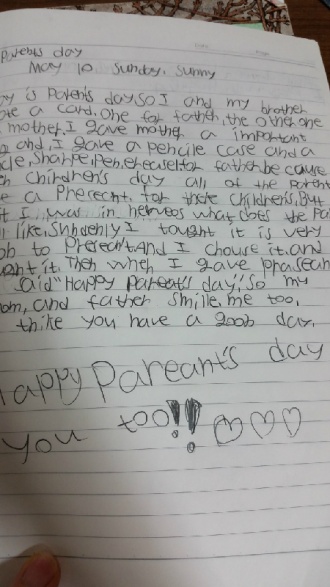 Parents day
May 10 Sunday, Sunny
ay is parents day. So I and my brother
te a card. one for father, the other one
mother. I gave mother a important
and, I gave a pencile case and a
cle, Sharpe, Pen, erecaser for father be cause
ch children's day all of the parent
e a Presecnt. for there children's. But
t I was in herveos what does the pa
r like. Suhdenly I tought it is very
ob to Presecnt. And I chouse it. and
it. Then when I gave
said "Happy Pareat's day", so my
om, and father Smille. me too,
thike you have a goob day.
Happy Pareant's day
you too!! ♡♡♡